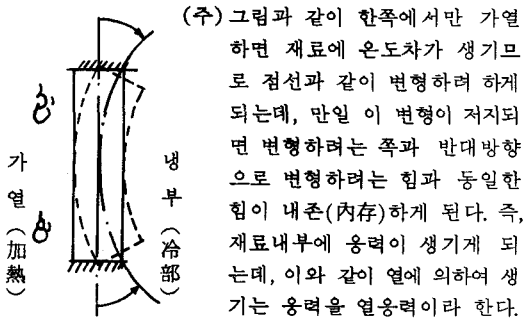 가열(加熱)
냉부(冷部)
(주) 그림과 같이 한쪽에서만 가열
하면 재료에 온도차가 생기므
로 점선과 같이 변형하려 하게
되는데, 만일 이 변형이 저지되
면 변형하려는 쪽과 반대방향
으로 변형하려는 힘과 동일한
힘이 내존(內存)하게 된다. 즉,
재료내부에 응력이 생기게 되
는데, 이와 같이 열에 의하여 생
기는 응력을 열응력이라 한다.